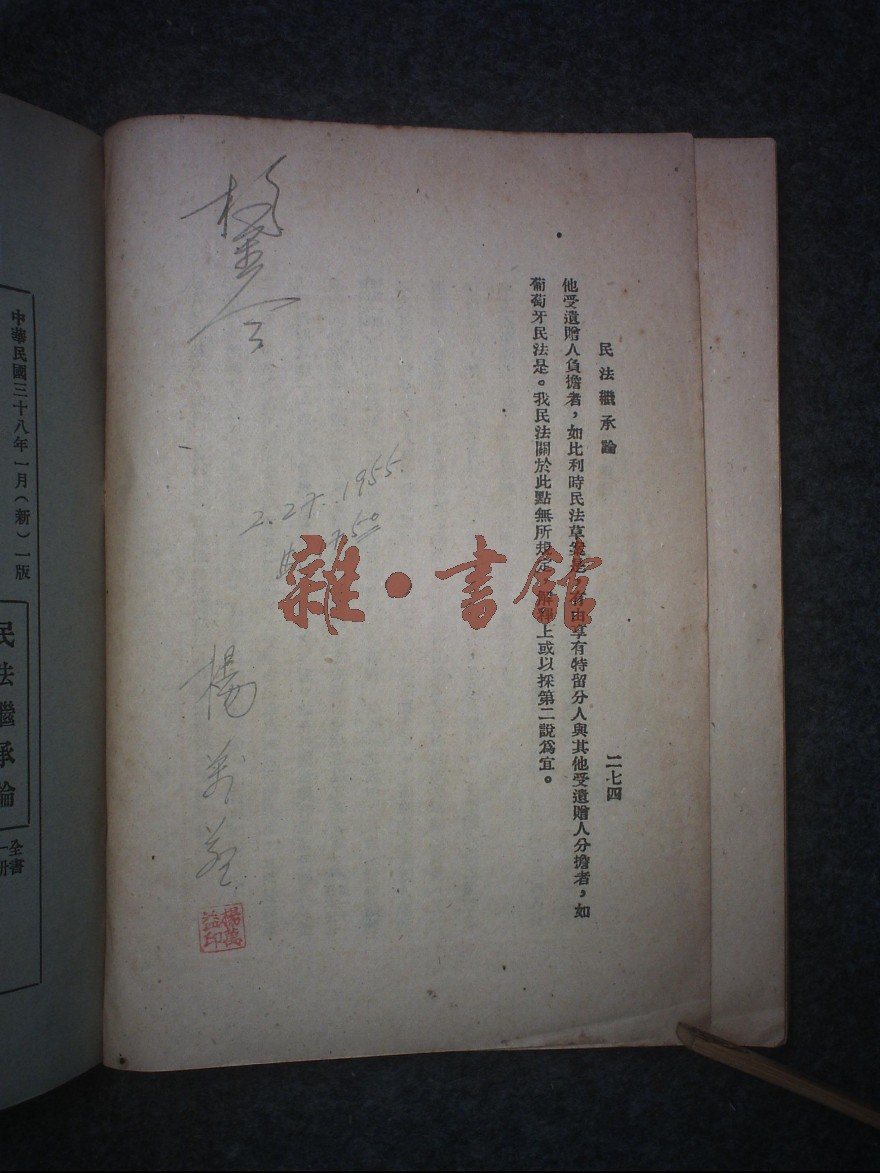 民法繼承論
二七四
他受遺贈人負擔者,如比利時民法草案是。有由享有特留分人與其他受遺贈人分擔者,如
葡萄牙民法是。我民法關於此點無所規定。解釋上或以採第二說爲宜。
2.27.1955.
雜·書館
楊萬益
楊萬益印
民法繼承論
全書一冊
中華民國三十八年一月(新)一版